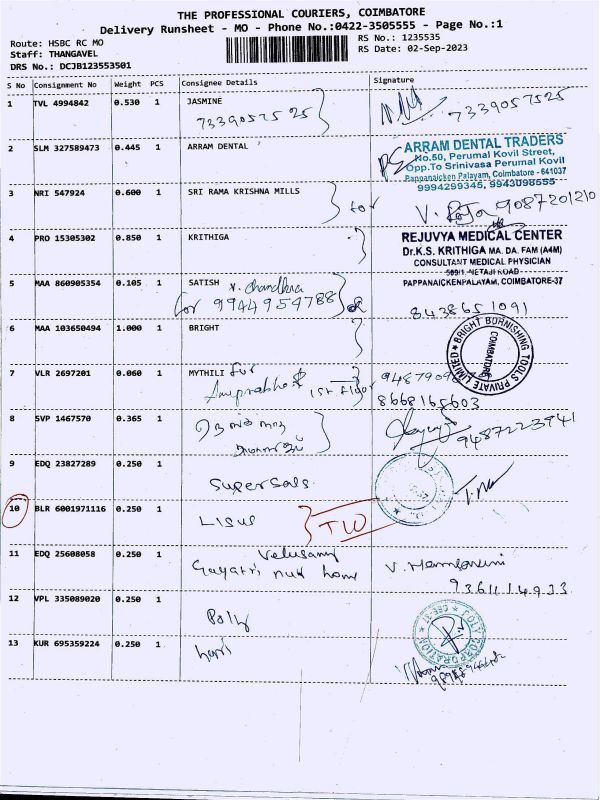 THE PROFESSIONAL COURIERS, COIMBATORE
Delivery Runsheet - MO - Phone No.:0422-3505555 - Page No.:1
Route: HSBC RC MO
Staff: THANGAVEL
DRS No.: DCJB123553501
RS No.: 1235535
RS Date: 02-Sep-2023
S No Consignment No Weight PCS Consignee Details Signature
1 TVL 4994842 0.530 1 JASMINE
7339057525 7339057525
2 SLM 327589473 0.445 1 ARRAM DENTAL
ARRAM DENTAL TRADERS
No.50, Perumal Kovil Street,
Opp.To Srinivasa Perumal Kovil
Pappanaicken Palayam, Coimbatore - 641037
9994299345, 9943098555
3 NRI 547924 0.600 1 SRI RAMA KRISHNA MILLS
for V. Raja 9087201210
4 PRO 15305302 0.850 1 KRITHIGA
REJUVYA MEDICAL CENTER
Dr.K.S. KRITHIGA MA. DA. FAM (A4M)
CONSULTANT MEDICAL PHYSICIAN
509/1, NETAJI ROAD
PAPPANAICKENPALAYAM, COIMBATORE-37
5 MAA 860905354 0.105 1 SATISH v. chandhra
for 9944954788
8438651091
6 MAA 103650494 1.000 1 BRIGHT
BRIGHT BURNISHING TOOLS PRIVATE LIMITED
COIMBATORE
7 VLR 2697201 0.060 1 MYTHILI for
1st floor
8668165603
8 SVP 1467570 0.365 1
9487223941
9 EDQ 23827289 0.250 1
Supersals
10 BLR 6001971116 0.250 1
Lisue TW
11 EDQ 25608058 0.250 1 Velusamy
Gayatri nuk home V.
9361114933
12 VPL 335089020 0.250 1
Poly
CORPORATION
CBE-37
13 KUR 695359224 0.250 1
hari